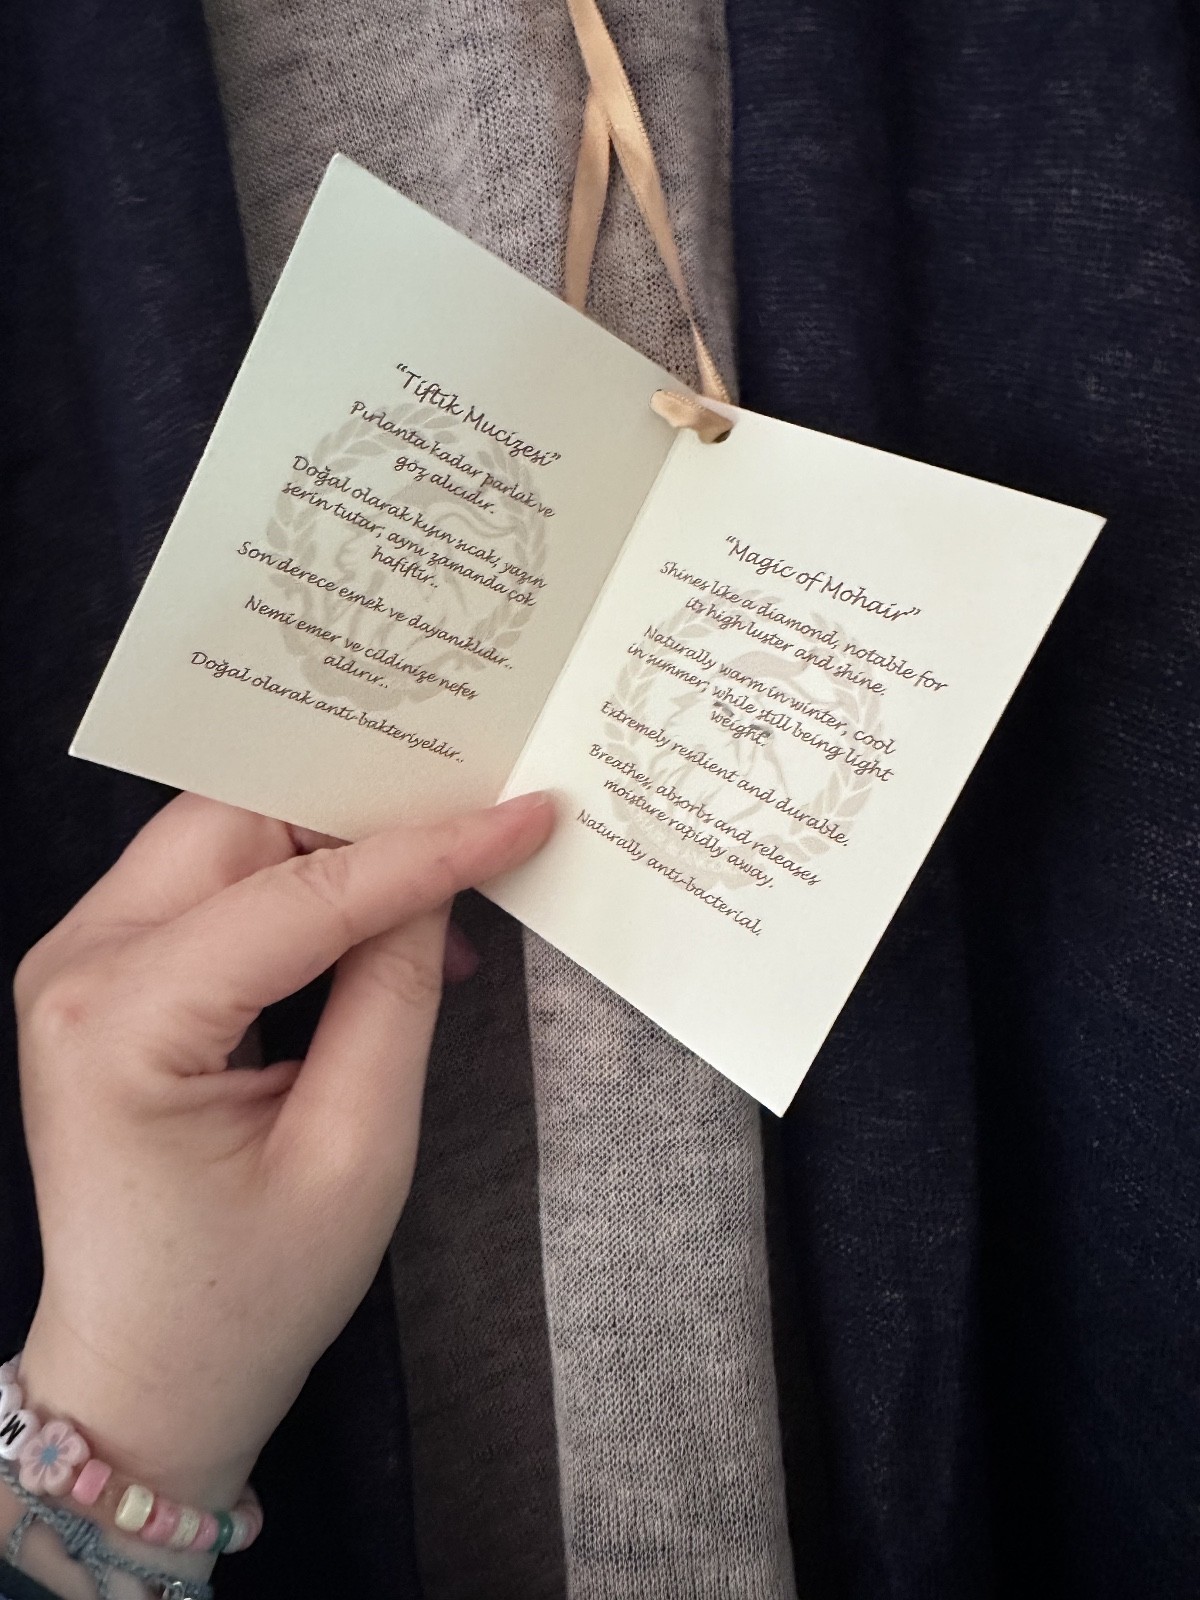 "Tiftik Mucizesi"
Pırlanta kadar parlak ve
göz alıcıdır.
Doğal olarak kışın sıcak; yazın
serin tutar; aynı zamanda çok
hafiftir..
Son derece esnek ve dayanıklıdır..
Nemi emer ve cildinize nefes
aldırır..
Doğal olarak anti-bakteriyeldir..
"Magic of Mohair"
Shines like a diamond, notable for
its high luster and shine.
Naturally warm in winter, cool
in summer; while still being light
weight.
Extremely resilient and durable.
Breathes, absorbs and releases
moisture rapidly away.
Naturally anti-bacterial.
M